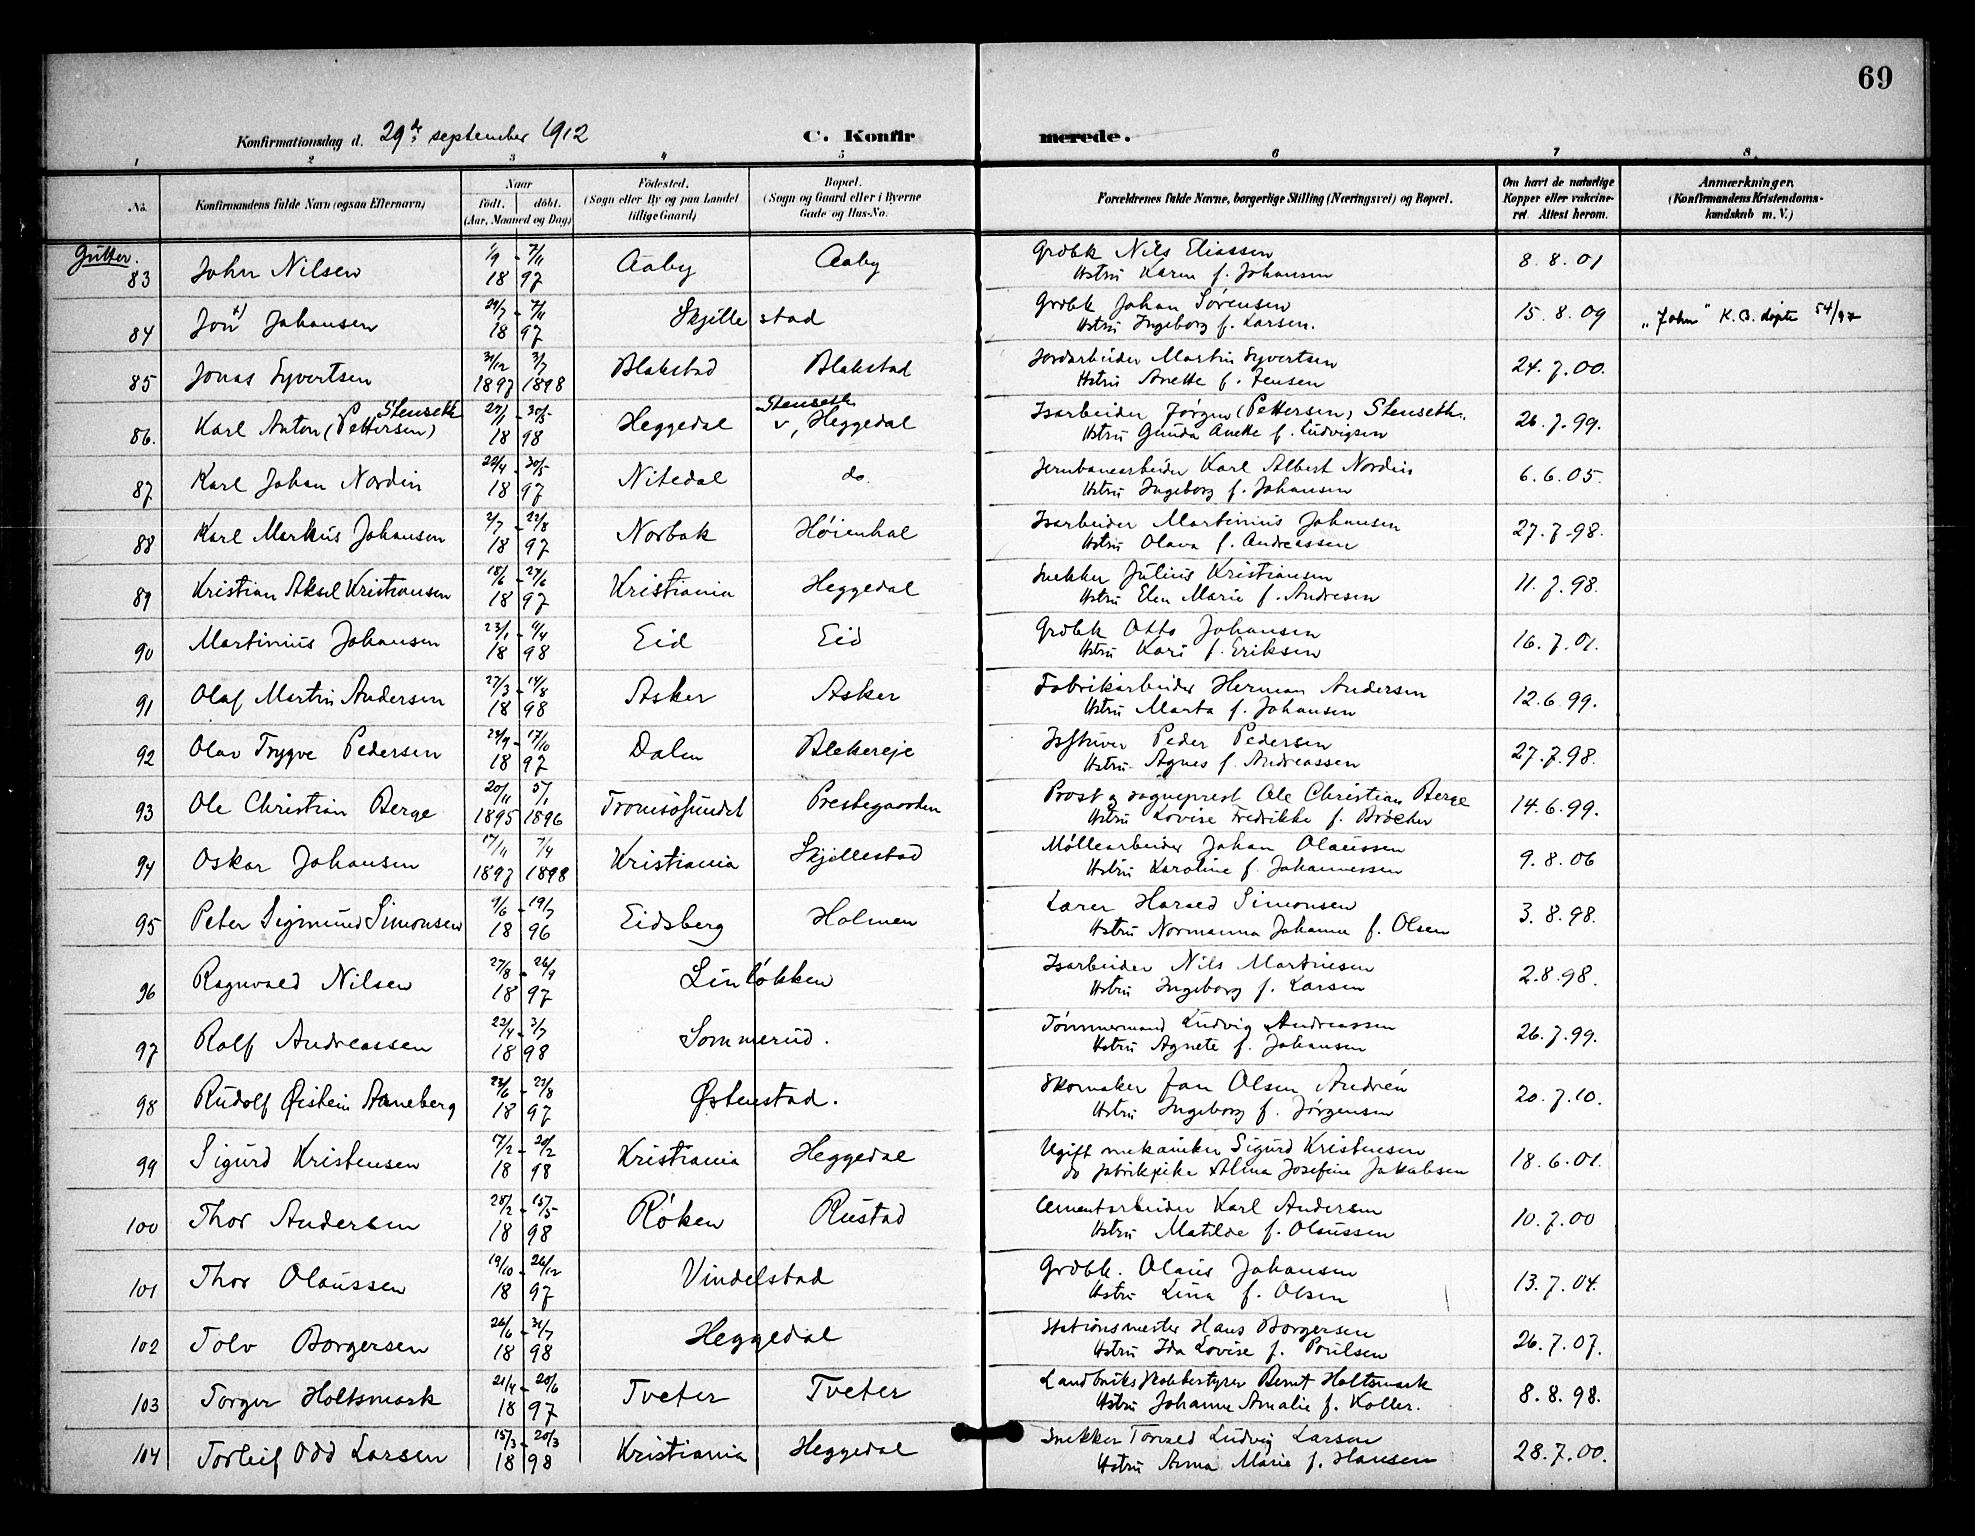 69
Konfirmationsdag d. 29de september 1912 C. Konfirmerede.
1 2 3 4 5 6 7 8.
No. Konfirmandens fulde Navn (ogsaa Efternavn) Naar født. døbt. (Aar, Maaned og Dag) Fødested. (Sogn eller By og paa Landet tillige Gaard) Bopæl. (Sogn og Gaard eller i Byerne Gade og Hus-No. Forældrenes fulde Navne, borgerlige Stilling (Næringsvei) og Bopæl. Om havt de naturlige Kopper eller vakcineret. Attest herom. Anmærkninger. (Konfirmandens Kristendomskundskab m. V.)
Gutter.
83 John Nilsen 1/9 - 7/11 1897 Aaby Aaby Grdbk Nils Eliassen
Hstru Karen f. Johansen 8.8.01
84 Jon x) Johansen 29/7 - 7/11 1897 Skjillestad Grdbk Johan Sørensen
Hstru Ingeborg f. Larsen. 15.8.09 "John" K.B. døpte 54/97
85 Jonas Syvertsen 31/12 1897 3/7 1898 Blakstad Blakstad Jordarbeider Martin Syvertsen
Hstru Anette f. Jensen 24.7.00.
86. Karl Anton (Pettersen) Stenseth 27/1 - 30/5 1898 Heggedal Stenseth v, Heggedal Isarbeider Jørgen (Pettersen) Stenseth.
Hstru Gunda Anette f. Ludvigsen 26.7.99.
87 Karl Johan Nordin 22/4 - 30/5 1897 Nitedal do. Jernbanearbeider Karl Albert Nordin
Hstru Ingeborg f. Johansen 6.6.05.
88 Karl Markus Johansen 2/7 - 22/8 1897 Norbak Høienhal Isarbeider Martinius Johansen
Hstru Olava f. Andreassen 27.7.98.
89 Kristian Aksel Kristiansen 18/6 - 27/6 1897 Kristiania Heggedal Snekker Julius Kristiansen
Hstru Elen Marie f. Andresen 11.7.98.
90 Martinius Johansen 23/1 - 11/4 1898 Eid Eid Grdbk Otto Johansen
Hstru Kari f. Eriksen 16.7.01.
91 Olaf Martin Andersen 27/3 - 14/8 1898 Asker Asker Fabrikarbeider Herman Andersen
Hstru Marta f. Johansen 12.6.99.
92 Olav Trygve Pedersen 24/9 - 17/10 1897 Dalen Blekereje Peder Pedersen
Hstru Agnes f. Andreassen 27.7.98.
93 Ole Christian Berge 20/11 1895 5/1 1896 Tromsøsundet Prestegaarden Prost og sogneprest Ole Christian Berge
Hstru Lovise Fredrikke f. Bröcher 14.6.99.
94 Oskar Johansen 17/11 1897 7/4 1898 Kristiania Skjillestad Møllearbeider Johan Olaussen
Hstru Karoline f. Johannessen 9.8.06
95 Peter Sigmund Simonsen 9/6 - 19/7 1896 Eidsberg Holmen Lærer Harald Simonsen
Hstru Normanna Johanne f. Olsen 3.8.98.
96 Ragnvald Nilsen 27/8 - 26/9 1897 Linløkken Isarbeider Nils Martinsen
Hstru Ingeborg f. Larsen 2.8.98.
97 Rolf Andreassen 23/4 - 3/7 1898 Sommerud. Tømmermand Ludvig Andreassen
Hstru Agnete f. Johansen 26.7.99.
98 Rudolf Øistein Aaneberg 23/6 - 22/8 1897 Østenstad. Skomaker Jan Olsen Andrén
Hstru Ingeborg f. Jørgensen 20.7.10.
99 Sigurd Kristensen 17/2 - 20/2 1898 Kristiania Heggedal Ugift mekaniker Sigurd Kristensen
do fabrikpike Alma Josefine Jakobsen 18.6.01.
100 Thor Andersen 28/2 - 15/5 1898 Røken Rustad Cementarbeider Karl Andersen
Hstru Matilde f. Olaussen 10.7.00
101 Thor Olaussen 19/10 - 26/12 1897 Vindelstad Grdbk. Olaus Johansen
Hstru Lina f. Olsen 13.7.04.
102 Tolv Borgersen 26/6 - 31/7 1898 Heggedal Stationsmester Hans Borgersen
Hstru Ida Lovise f. Poulsen 26.7.07.
103 Torger Holtsmark 21/4 - 20/6 1897 Tveter Tveter Landbruksskolebestyrer Bernt Holtsmark
Hstru Johanne Amalie f. Koller. 8.8.98.
104 Torleif Odd Larsen 15/3 - 20/3 1898 Kristiania Heggedal Snekker Torvald Ludvig Larsen
Hstru Anna Marie f. Hansen 28.7.00.